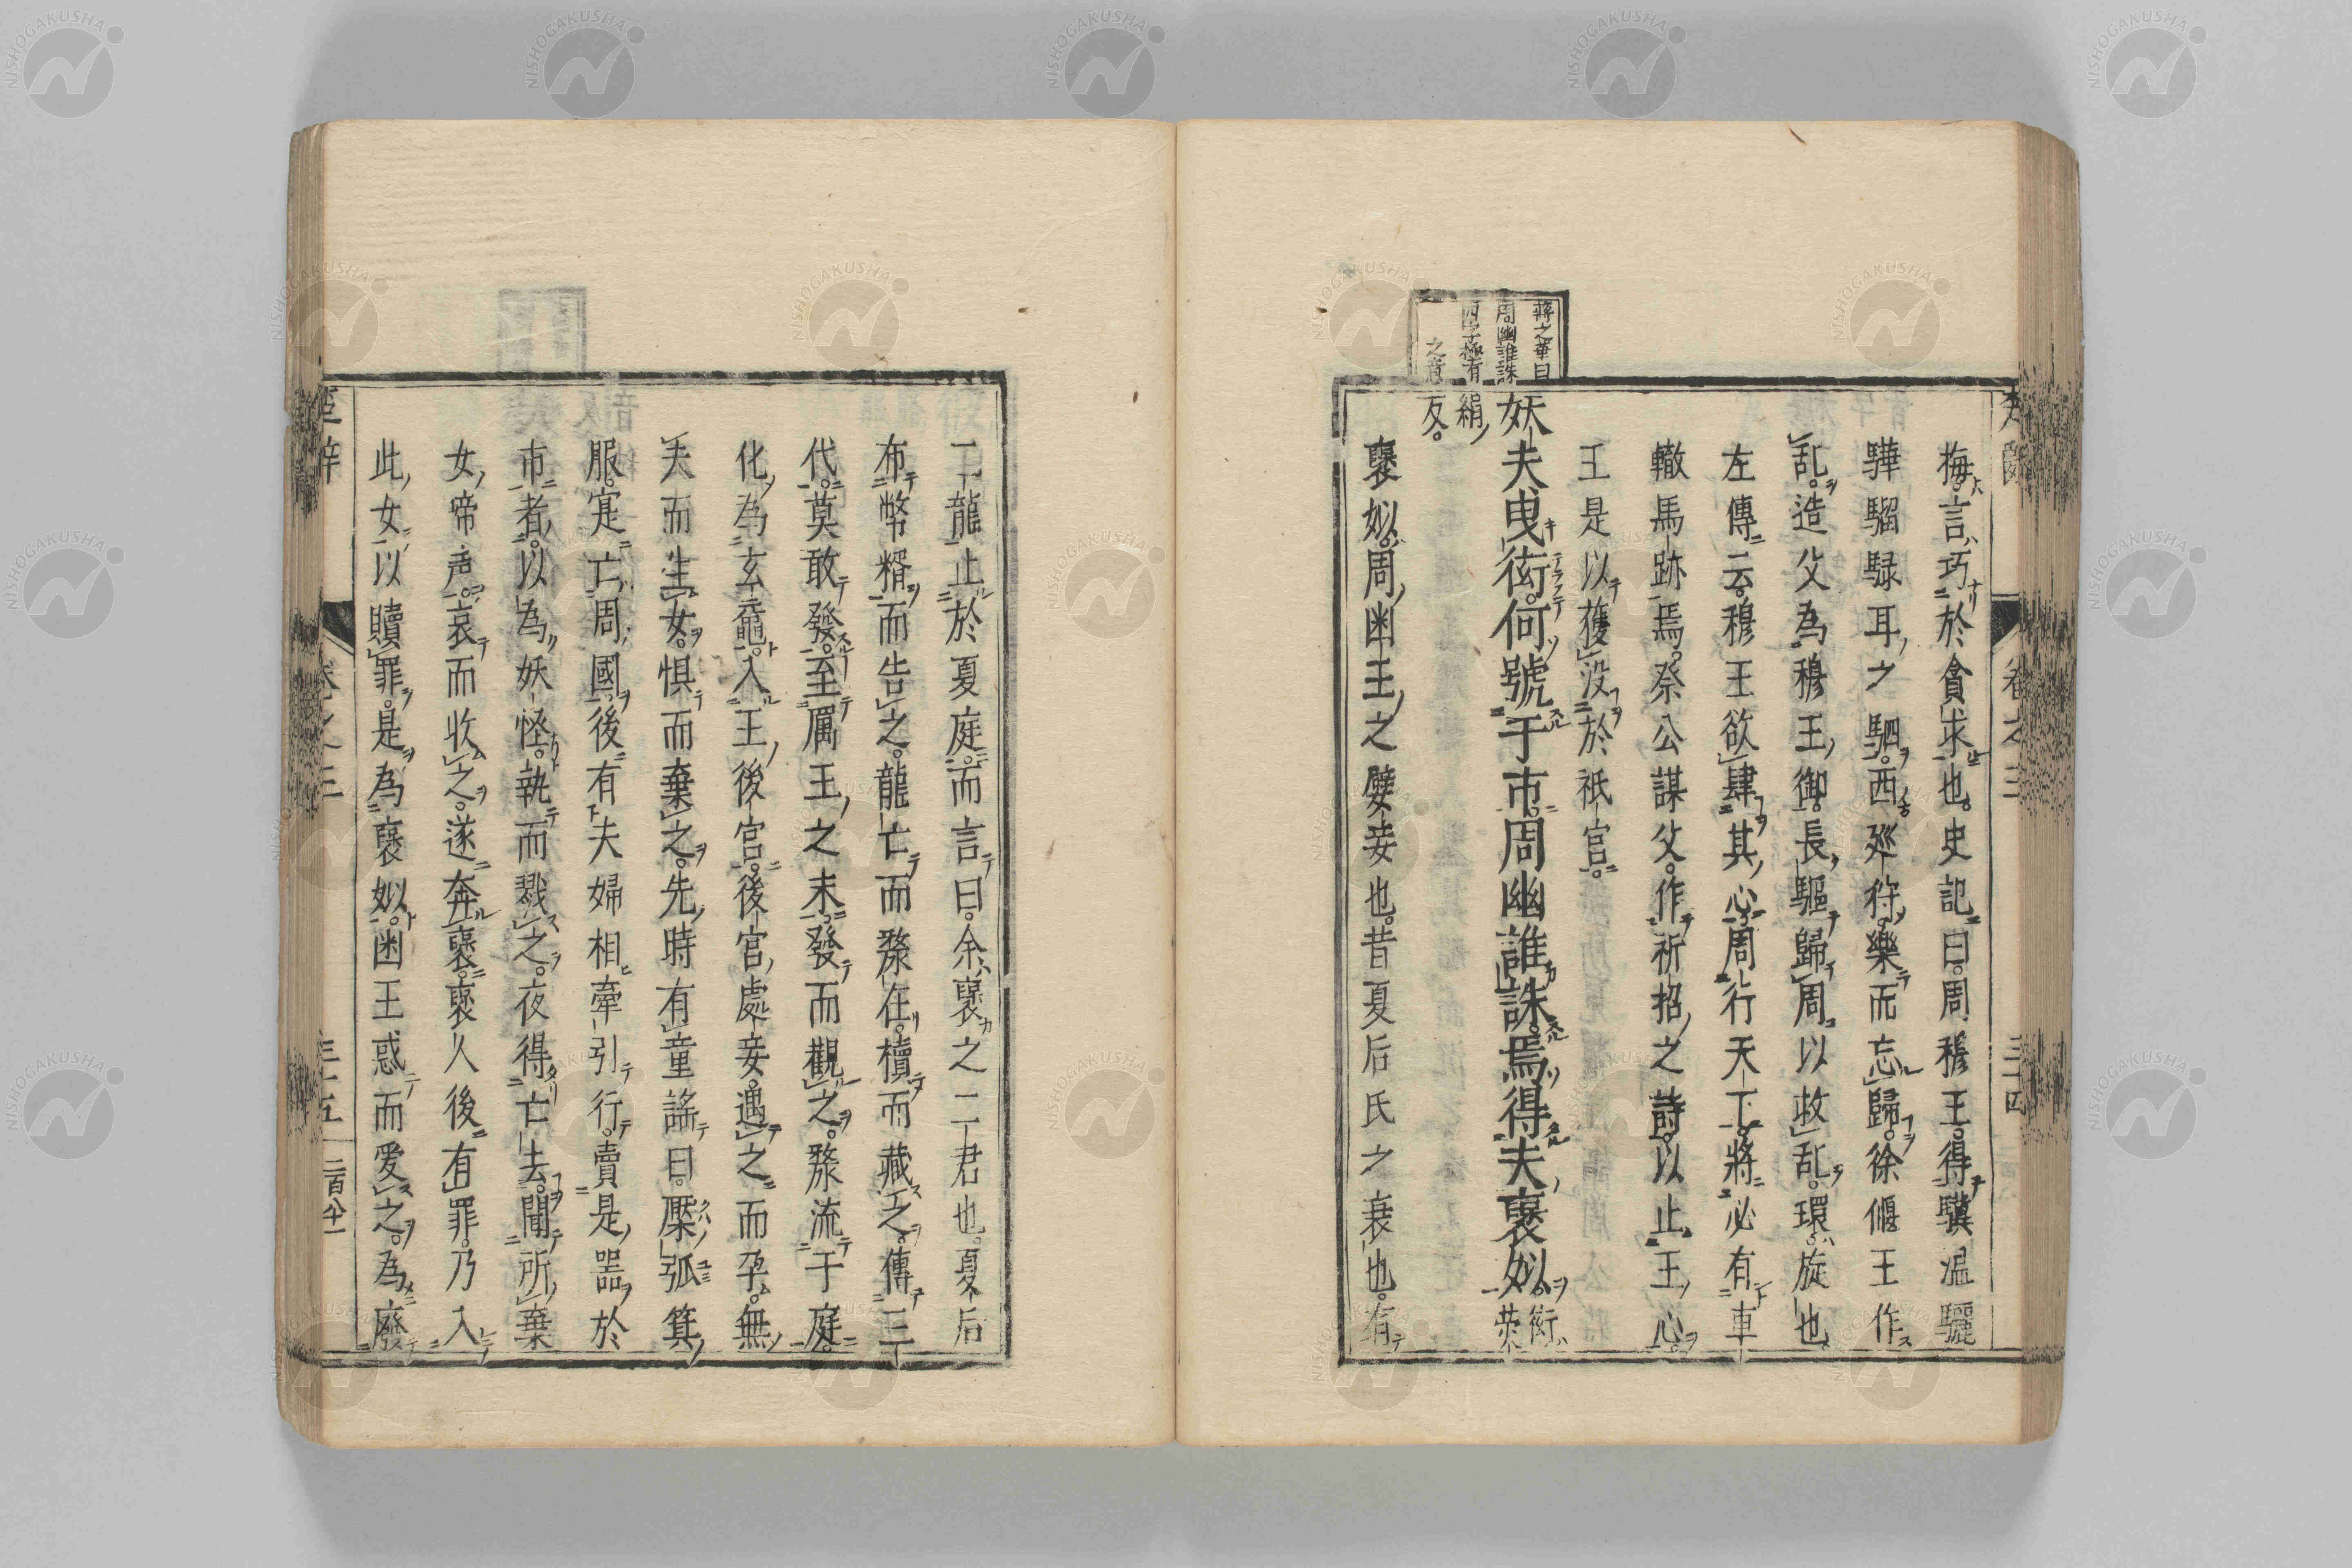 梅言巧於貪求也史記曰周穆王得驥温驪
驊騮騄耳之駟西廵狩樂而忘歸徐偃王作
乱造父為穆王御長驅歸周以救乱環旋也
左傳云穆王欲肆其心周行天下將必有車
轍馬跡焉祭公謀父作祈招之詩以止王心
王是以獲没於祇宮
蔣之華曰
周幽誰誅
四字極有
之意
妖夫曳衒何號于市周幽誰誅焉得夫褒姒衒熒
絹
反
褒姒周幽王之嬖妾也昔夏后氏之衰也有
卷之三
三十四
二龍止於夏庭而言曰余褒之二君也夏后
布幣糈而告之龍亡而漦在櫝而藏之傳三
代莫敢發至厲王之末發而觀之漦流于庭
化為玄黿入王後宮後宮處妾遇之而孕無
夫而生女惧而棄之先時有童謠曰檿弧箕
服寔亡周國後有夫婦相牽引行賣是器於
市者以為妖怪執而戮之夜得亡去聞所棄
女啼声哀而收之遂奔褒褒人後有罪乃入
此女以贖罪是為褒姒幽王惑而愛之為廢
楚辭
卷之三
三十五